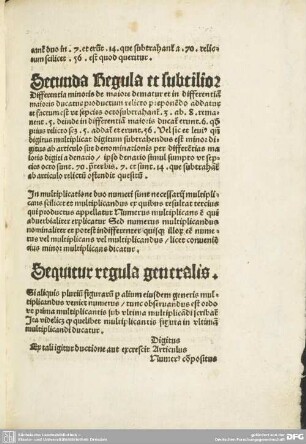 tur duo in .7. et erūt .14. que subtrahantꝉ a .70. relic-
tum scilicet .56. est quod queritur.
Secunda Regula et subtilior
Differentia minoris de maiore dematur et in differentiā
maioris ducatur productum relicto preponēdo addatur
et factum est ut septies octo subtrahantꝉ .3. ab .8. rema-
nent .5. deinde in differentiā maioris ducātꝉ erunt .6. qȝ
prius relicto sez .5. addatꝉ et erunt .56. Vel sic et levi⁹ qm̄
digitus multiplicat digitum subtrahendus est minor di-
gitus ab articulo sue denominationis per differētias ma-
ioris digiti a denario / ipso denario simul sumpto ut sep-
ties octo sunt .70. preter bis .7. et sunt .14. que subtrahantꝉ
ab articulo relicti ostendit quesitū.
In multiplicatione duo numeri sunt necessarij multipli-
cans scilicet et multiplicandus ex quibus resultat tercius
qui productus appellatur Numerus multiplicans ē qui
aduerbialiter explicatur Sed numerus multiplicandus
nominaliter et potest indifferenter quisqȝ illorū eē nume-
rus vel multiplicans vel multiplicandus / licet conueniētius
minor multiplicans dicatur.
Sequitur regula generalis.
Si aliquis pluriū figurarū p alium eiusdem generis mul-
tiplicandus veniet numerus / tunc obseruandus est ordo
ut prima multiplicantis sub vltima multiplicādi scribatꝉ
Ita videlicȝ qȝ quelibet multiplicantis figura in vltimā
multiplicandi ducatur.
Digitus
Ex tali igitur ductione aut excrescit Articulus
Numerꝰ cōpositus
SLUB
Wir führen Wissen.
http://digital.slub-dresden.de/
Sächsische Landesbibliothek -
Staats- und Universitätsbibliothek Dresden
gefördert von der
Deutschen Forschungsgemeinschaft
DFG